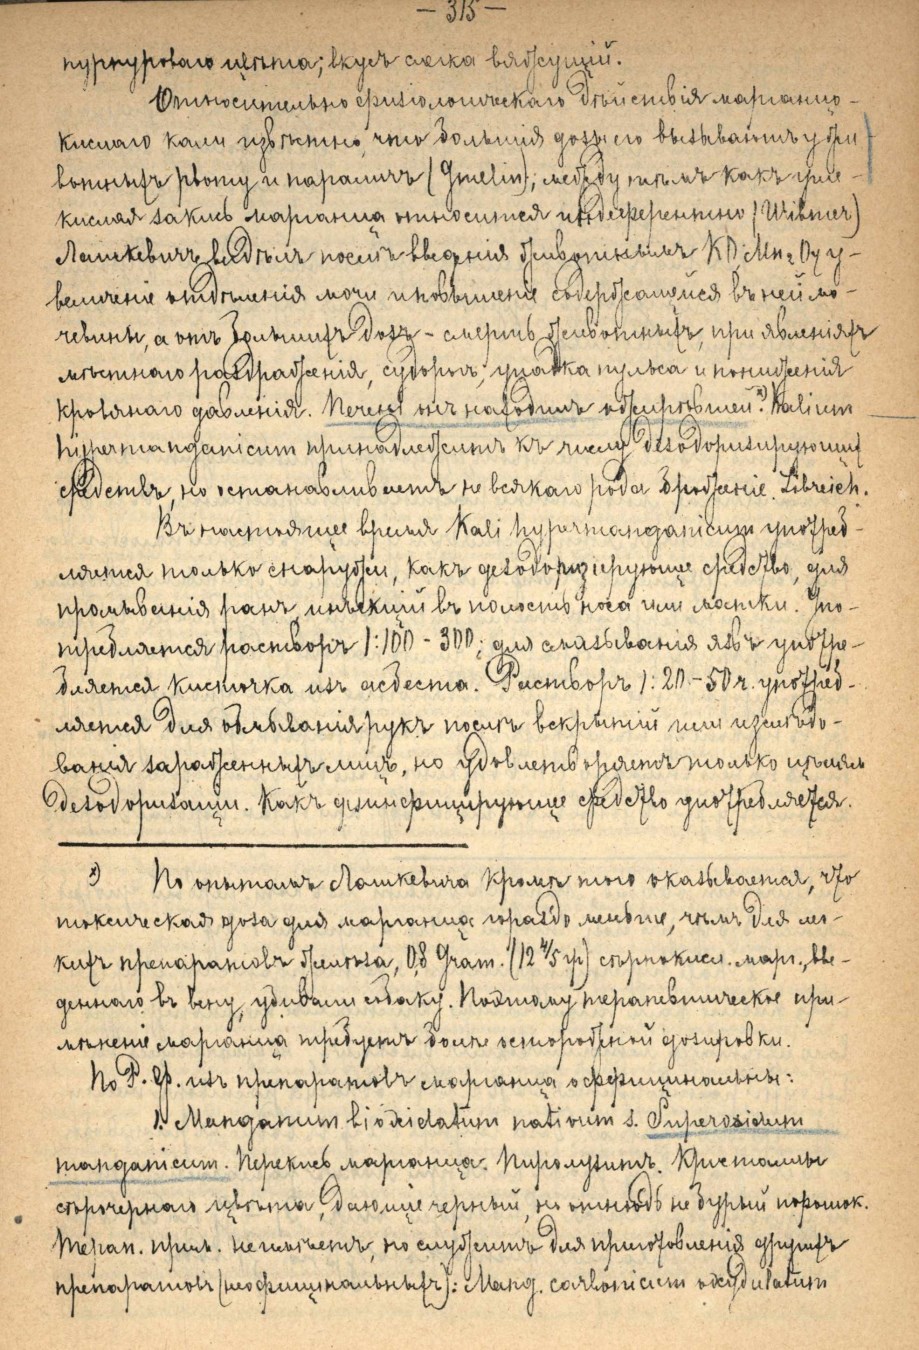 — 315 —
пурпуроваго цвѣта; вкусъ слегка вяжущій.
Относительно физіологическаго дѣйствія марганцо-
кислаго кали извѣстно, что большія дозы его вызываютъ у жи-
вотныхъ рвоту и параличъ (Gmelin); между тѣмъ какъ угле-
кислая закись марганца относится индеферентно (Wibmer)
Лашкевичъ видѣлъ послѣ введенія животнымъ KO, Mn₂O₇ у-
величеніе отдѣленія мочи и повышеніе содержащейся въ ней мо-
чевины, а отъ большихъ дозъ – смерть животныхъ, при явленіяхъ
мѣстнаго раздраженія, судорогъ, упадка пульса и пониженія
кровянаго давленія. Печень онъ находилъ ожирѣвшей.ˣ⁾ Kalium
hypermanganicum принадлежитъ къ числу дезодоризирующихъ
средствъ, но останавливаетъ не всякаго рода броженіе. Libreich.
Въ настоящее время Kali hypermanganicum употреб-
ляется только снаружи, какъ дезодоризирующее средство, для
промыванія ранъ, инъекцій въ полость носа или матки. Упо-
требляется растворъ 1:100 – 300; для смазыванія язвъ употре-
бляется кисточка изъ асбеста. Растворъ 1: 20 – 50 ч. употреб-
ляется для обмыванія рукъ послѣ вскрытій или изслѣдо-
ванія зараженныхъ лицъ, но удовлетворяетъ только цѣлямъ
дезодоризаціи. Какъ дезинфицирующее средство употребляется.
ˣ⁾ По опытамъ Лашкевича кромѣ того оказывается, что
токсическая доза для марганца гораздо меньше, чѣмъ для лег-
кихъ препаратовъ желѣза, 0,8 Gram. (12 4/5 гр) сѣрнокисл. марг., вве-
деннаго въ вену, убивали собаку. Поэтому терапевтическое при-
мѣненіе марганца требуетъ болѣе осторожной дозировки.
По Р. Ф. изъ препаратовъ марганца оффицинальны:
1. Manganum bioxidatum nativum s. Superoxidum
manganicum. Перекись марганца. Пиролузитъ. Кристаллы
сѣрочернаго цвѣта, дающіе черный, но отнюдь не бурый порошок.
Терап. прим. не имѣетъ, но служитъ для приготовленія другихъ
препаратовъ (неофицинальныхъ): Mang. carbonicum oxydulatum